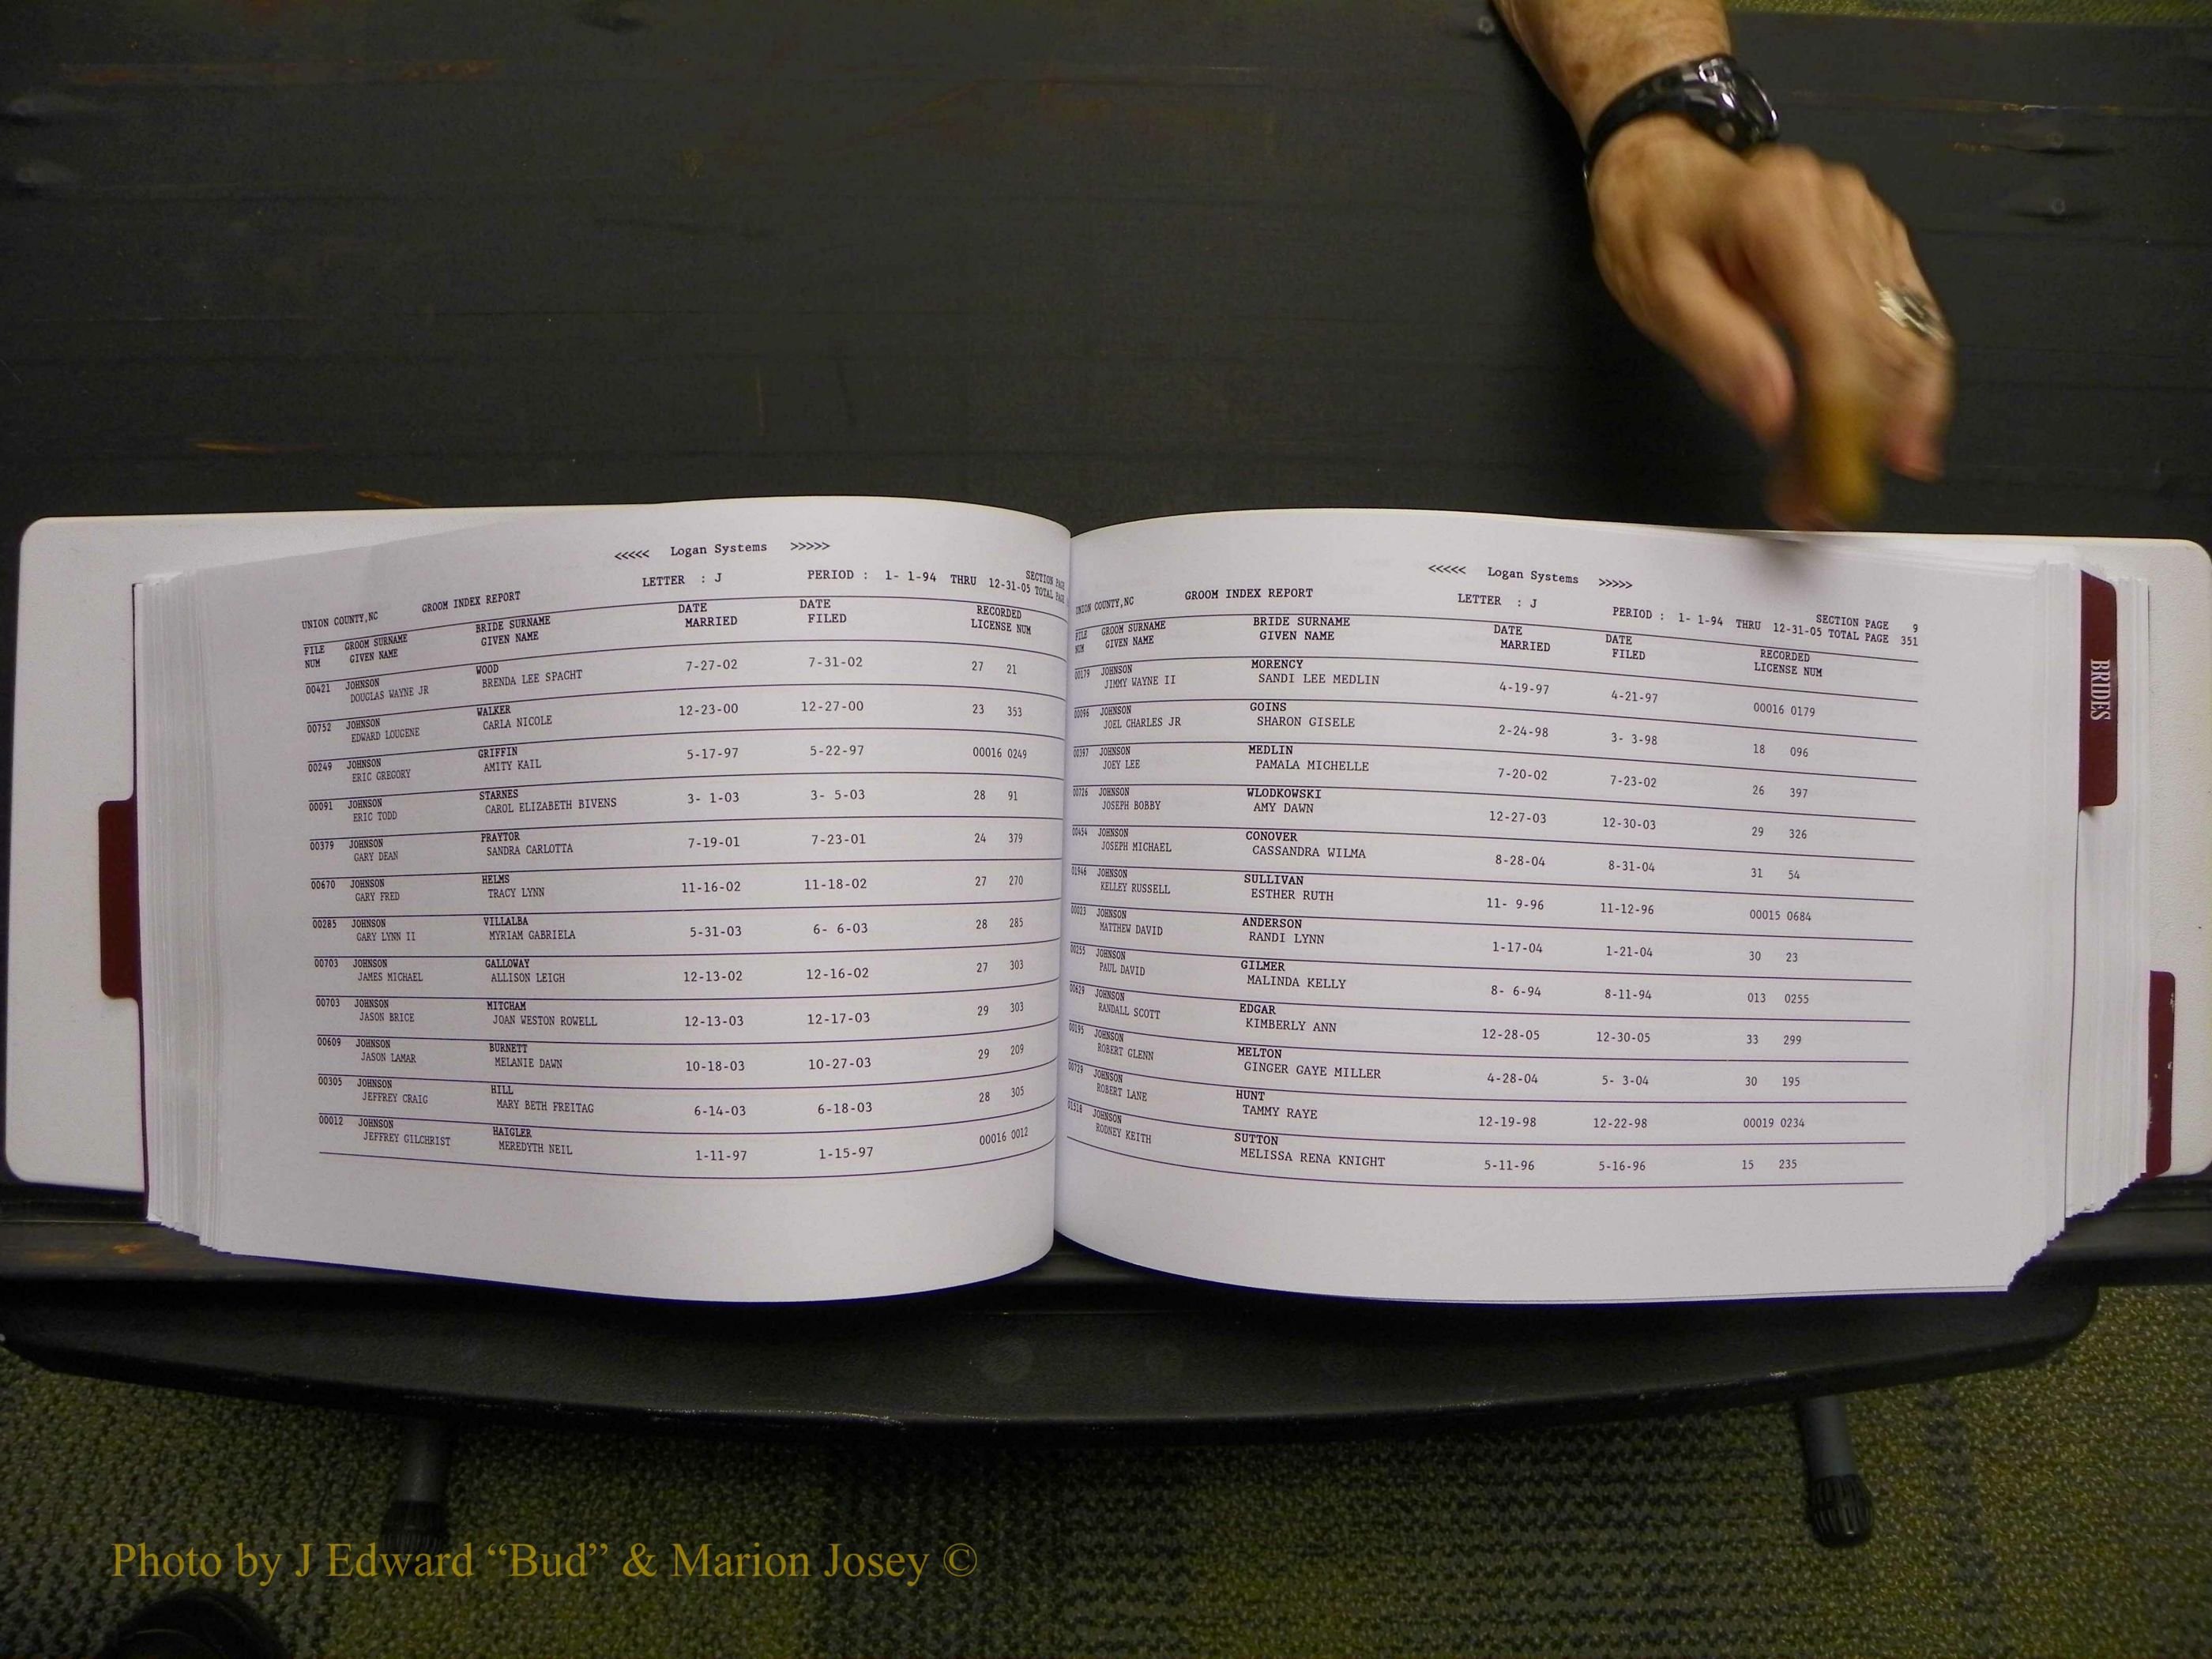 <<<<< Logan Systems >>>>>
UNION COUNTY,NC GROOM INDEX REPORT LETTER : J PERIOD : 1- 1-94 THRU 12-31-05 SECTION PAGE
TOTAL PAGE
FILE GROOM SURNAME BRIDE SURNAME DATE DATE RECORDED
NUM GIVEN NAME GIVEN NAME MARRIED FILED LICENSE NUM
00421 JOHNSON WOOD 7-27-02 7-31-02 27 21
DOUGLAS WAYNE JR BRENDA LEE SPACHT
00752 JOHNSON WALKER 12-23-00 12-27-00 23 353
EDWARD LOUGENE CARLA NICOLE
00249 JOHNSON GRIFFIN 5-17-97 5-22-97 00016 0249
ERIC GREGORY AMITY KAIL
00091 JOHNSON STARNES 3- 1-03 3- 5-03 28 91
ERIC TODD CAROL ELIZABETH BIVENS
00379 JOHNSON PRAYTOR 7-19-01 7-23-01 24 379
GARY DEAN SANDRA CARLOTTA
00670 JOHNSON HELMS 11-16-02 11-18-02 27 270
GARY FRED TRACY LYNN
00285 JOHNSON VILLALBA 5-31-03 6- 6-03 28 285
GARY LYNN II MYRIAM GABRIELA
00703 JOHNSON GALLOWAY 12-13-02 12-16-02 27 303
JAMES MICHAEL ALLISON LEIGH
00703 JOHNSON MITCHAM 12-13-03 12-17-03 29 303
JASON BRICE JOAN WESTON ROWELL
00609 JOHNSON BURNETT 10-18-03 10-27-03 29 209
JASON LAMAR MELANIE DAWN
00305 JOHNSON HILL 6-14-03 6-18-03 28 305
JEFFREY CRAIG MARY BETH FREITAG
00012 JOHNSON HAIGLER 1-11-97 1-15-97 00016 0012
JEFFREY GILCHRIST MEREDYTH NEIL
<<<<< Logan Systems >>>>>
UNION COUNTY,NC GROOM INDEX REPORT LETTER : J PERIOD : 1- 1-94 THRU 12-31-05 SECTION PAGE 9
TOTAL PAGE 351
FILE GROOM SURNAME BRIDE SURNAME DATE DATE RECORDED
NUM GIVEN NAME GIVEN NAME MARRIED FILED LICENSE NUM
00179 JOHNSON MORENCY 4-19-97 4-21-97 00016 0179
JIMMY WAYNE II SANDI LEE MEDLIN
00096 JOHNSON GOINS 2-24-98 3- 3-98 18 096
JOEL CHARLES JR SHARON GISELE
00397 JOHNSON MEDLIN 7-20-02 7-23-02 26 397
JOEY LEE PAMALA MICHELLE
00726 JOHNSON WLODKOWSKI 12-27-03 12-30-03 29 326
JOSEPH BOBBY AMY DAWN
00454 JOHNSON CONOVER 8-28-04 8-31-04 31 54
JOSEPH MICHAEL CASSANDRA WILMA
01946 JOHNSON SULLIVAN 11- 9-96 11-12-96 00015 0684
KELLEY RUSSELL ESTHER RUTH
00023 JOHNSON ANDERSON 1-17-04 1-21-04 30 23
MATTHEW DAVID RANDI LYNN
00255 JOHNSON GILMER 8- 6-94 8-11-94 013 0255
PAUL DAVID MALINDA KELLY
00629 JOHNSON EDGAR 12-28-05 12-30-05 33 299
RANDALL SCOTT KIMBERLY ANN
00195 JOHNSON MELTON 4-28-04 5- 3-04 30 195
ROBERT GLENN GINGER GAYE MILLER
00729 JOHNSON HUNT 12-19-98 12-22-98 00019 0234
ROBERT LANE TAMMY RAYE
01518 JOHNSON SUTTON 5-11-96 5-16-96 15 235
RODNEY KEITH MELISSA RENA KNIGHT
BRIDES
Photo by J Edward “Bud” & Marion Josey ©